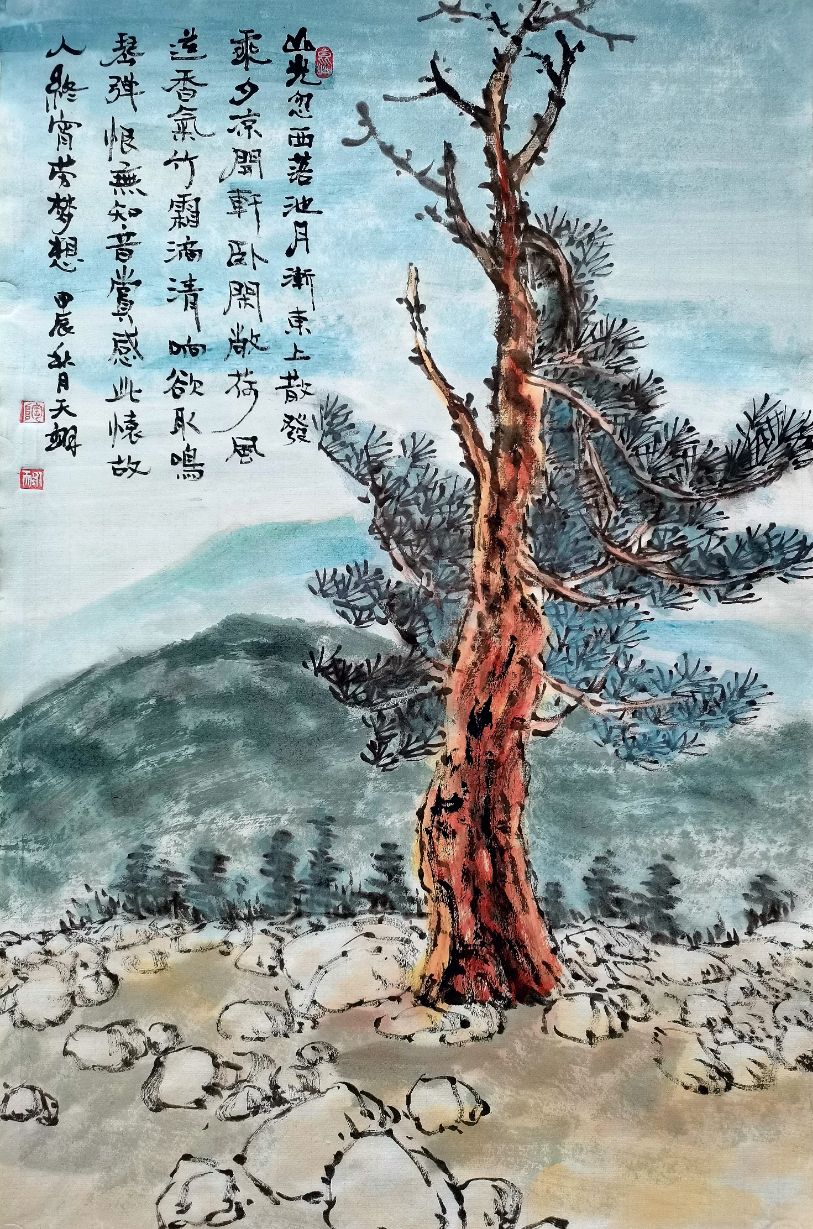 山光忽西落池月漸東上散發
乘夕凉開軒卧閑敞荷風
送香氣竹露滴清响欲取鳴
琴弹恨無知音賞感此懷故
人終宵劳梦想 甲辰秋月天翔